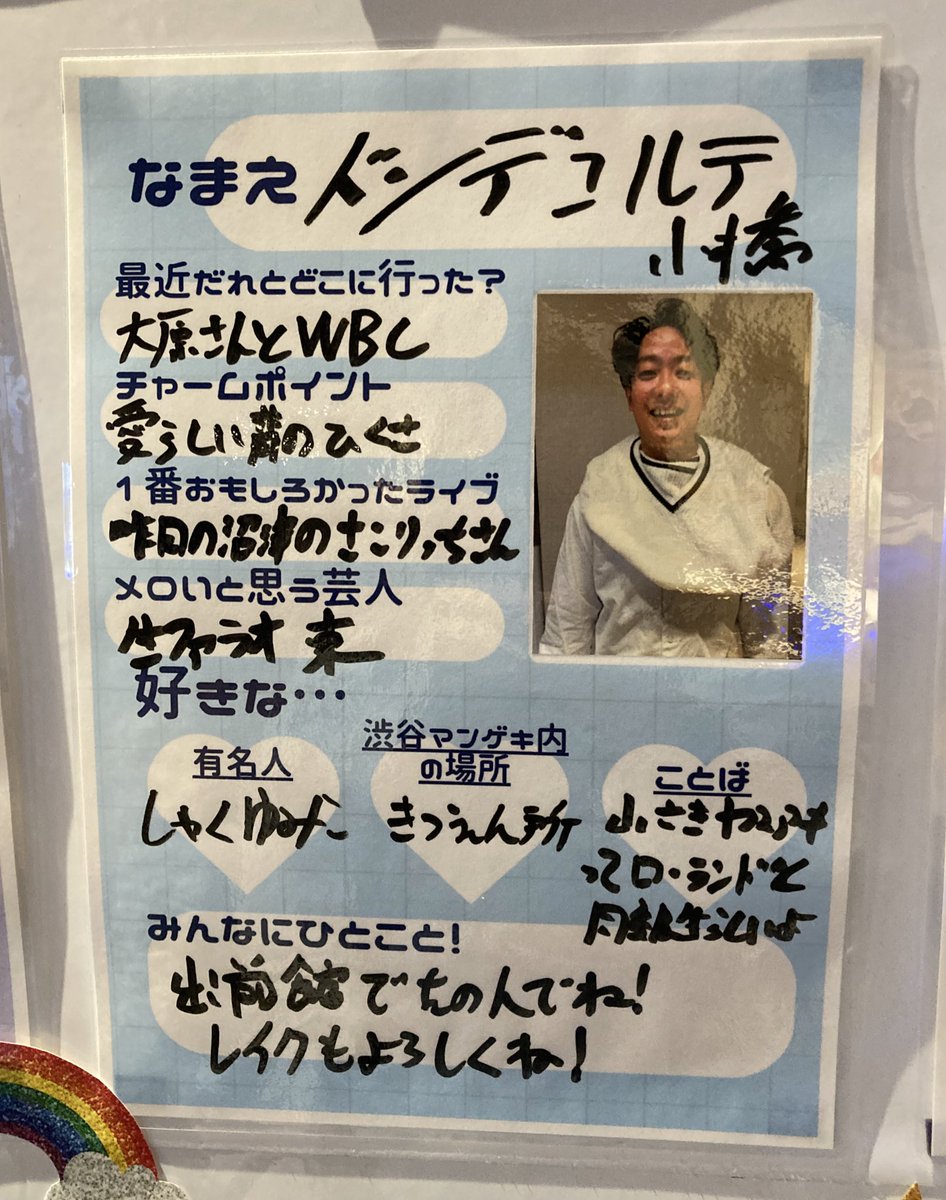 なまえ ドンデコルテ
小橋
最近だれとどこに行った？
大原さんとWBC
チャームポイント
愛らしい歯のひくさ
1番おもしろかったライブ
昨日の沼津のさこりっちさん
メロいと思う芸人
生ファラオ 来
好きな…
有名人
しゃくゆみ〜
渋谷マンゲキ内
の場所
きつえん所
ことば
ってローランドと
みんなにひとこと！
出前館でたのんでね！
レイクもよろしくね！